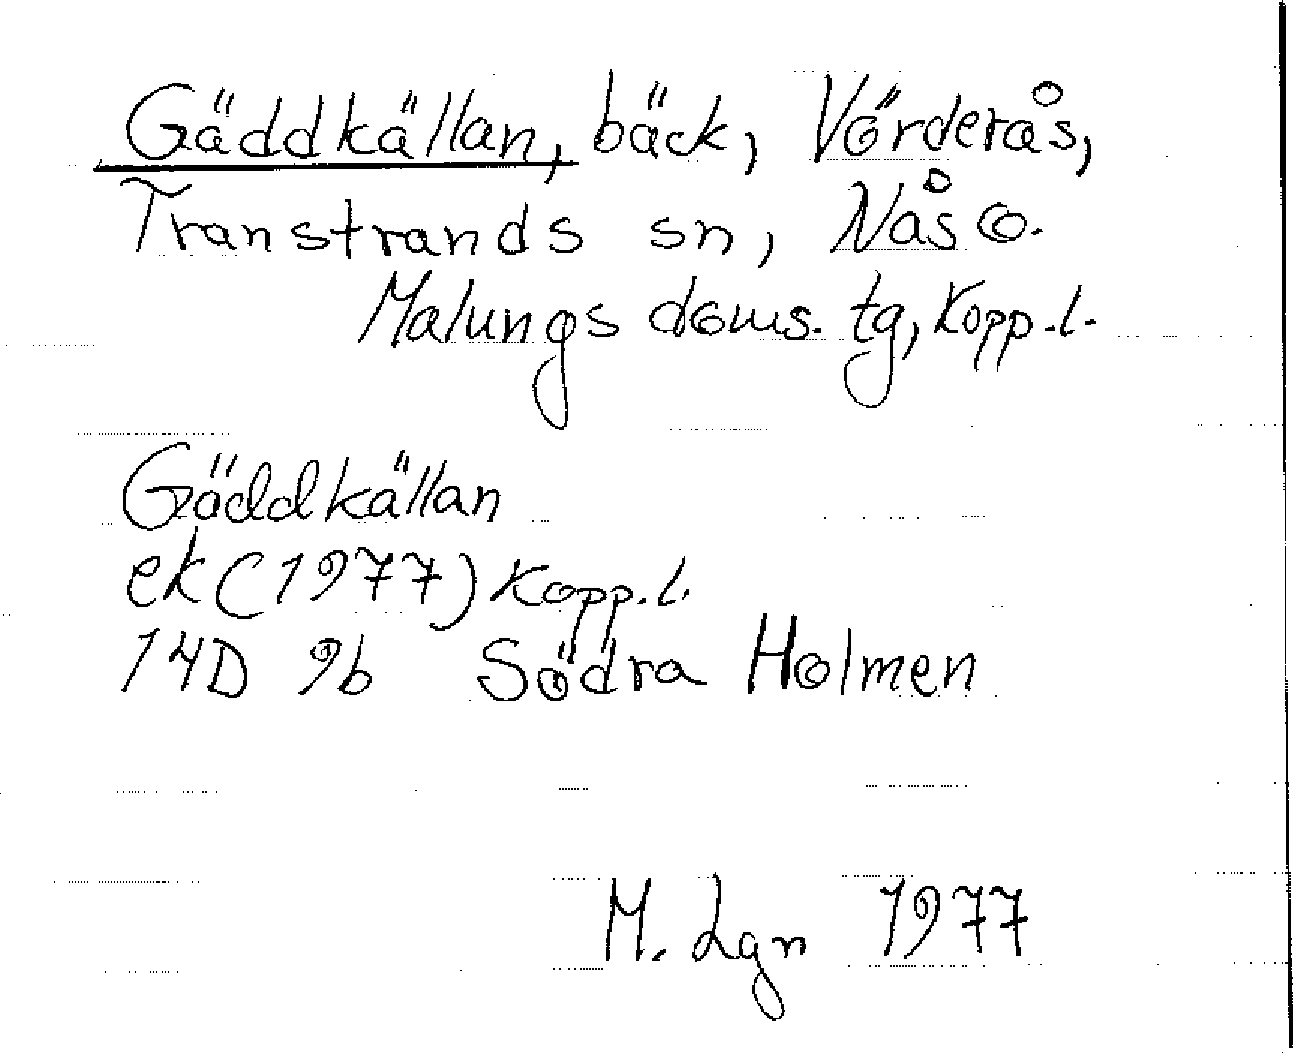 Gäddkällan, bäck, Vörderås,
Transtrands sn, Nås o.
Malungs doms. tg, Kopp. l.
Gäddkällan
ek (1977) Kopp. l.
14D 9b Södra Holmen
M. Lgn 1977